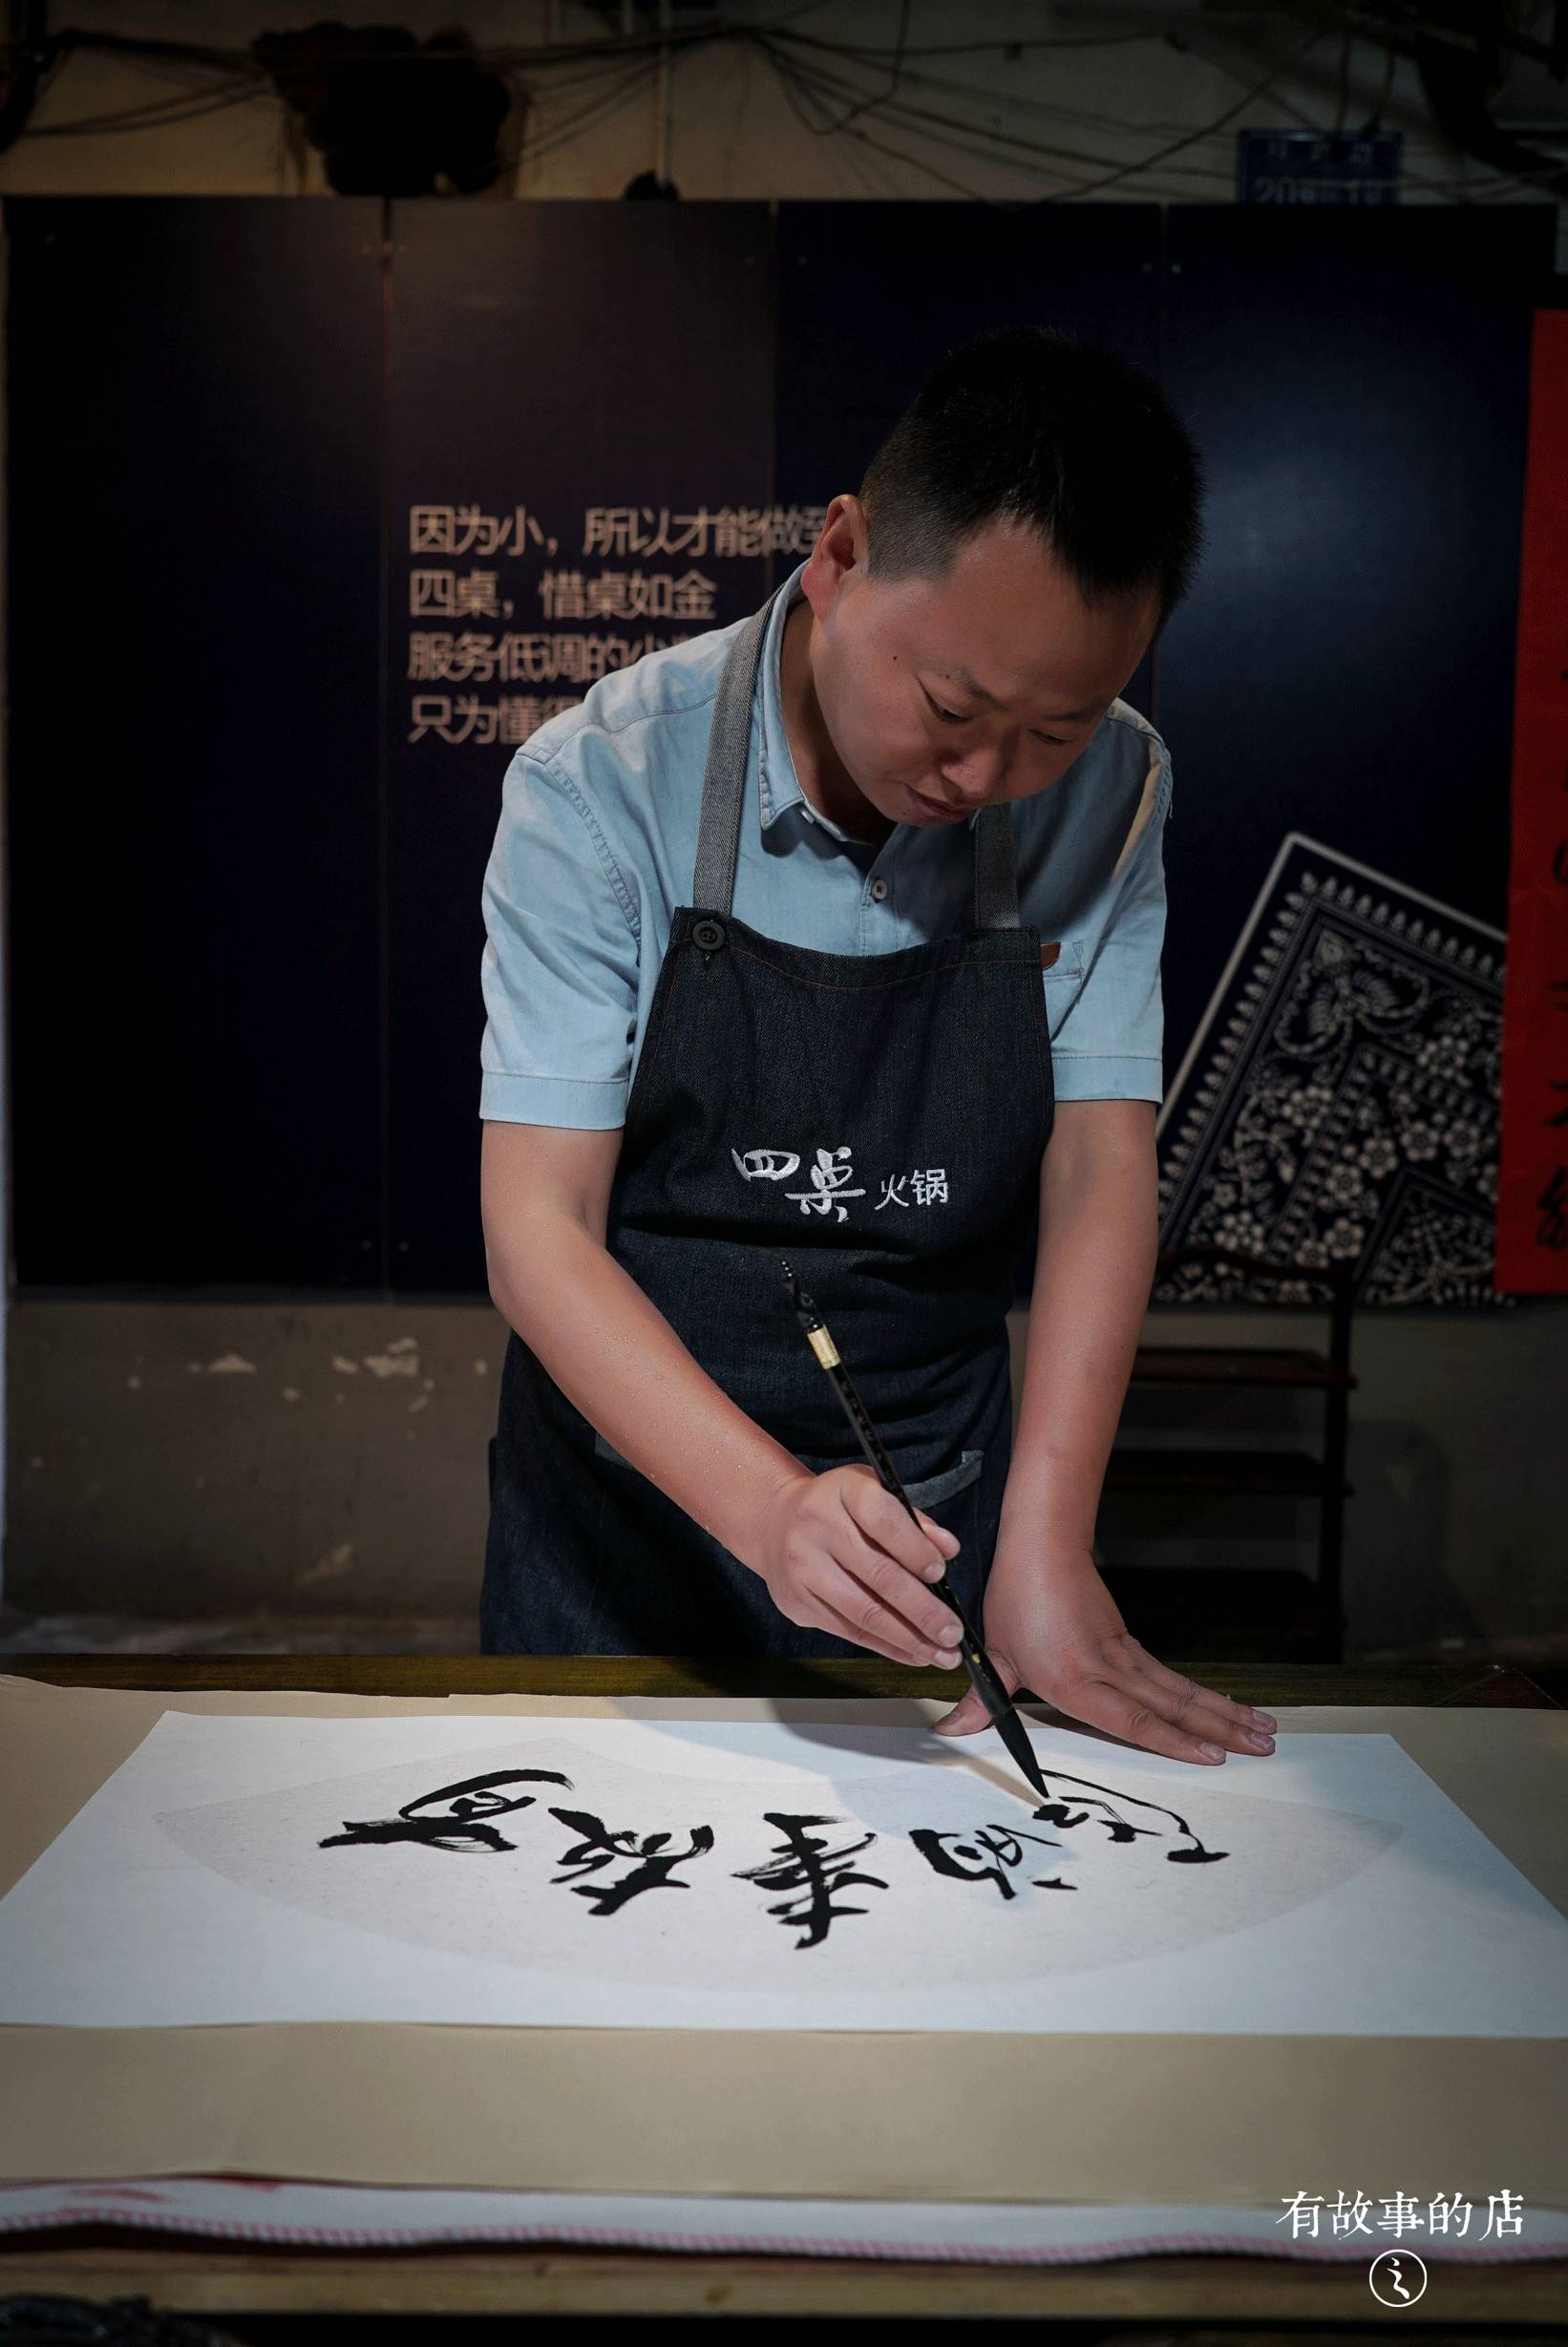 因为小，所以才能做到
四桌，惜桌如金
服务低调的
只为懂
四桌 火锅
有故事的店
有故事的店